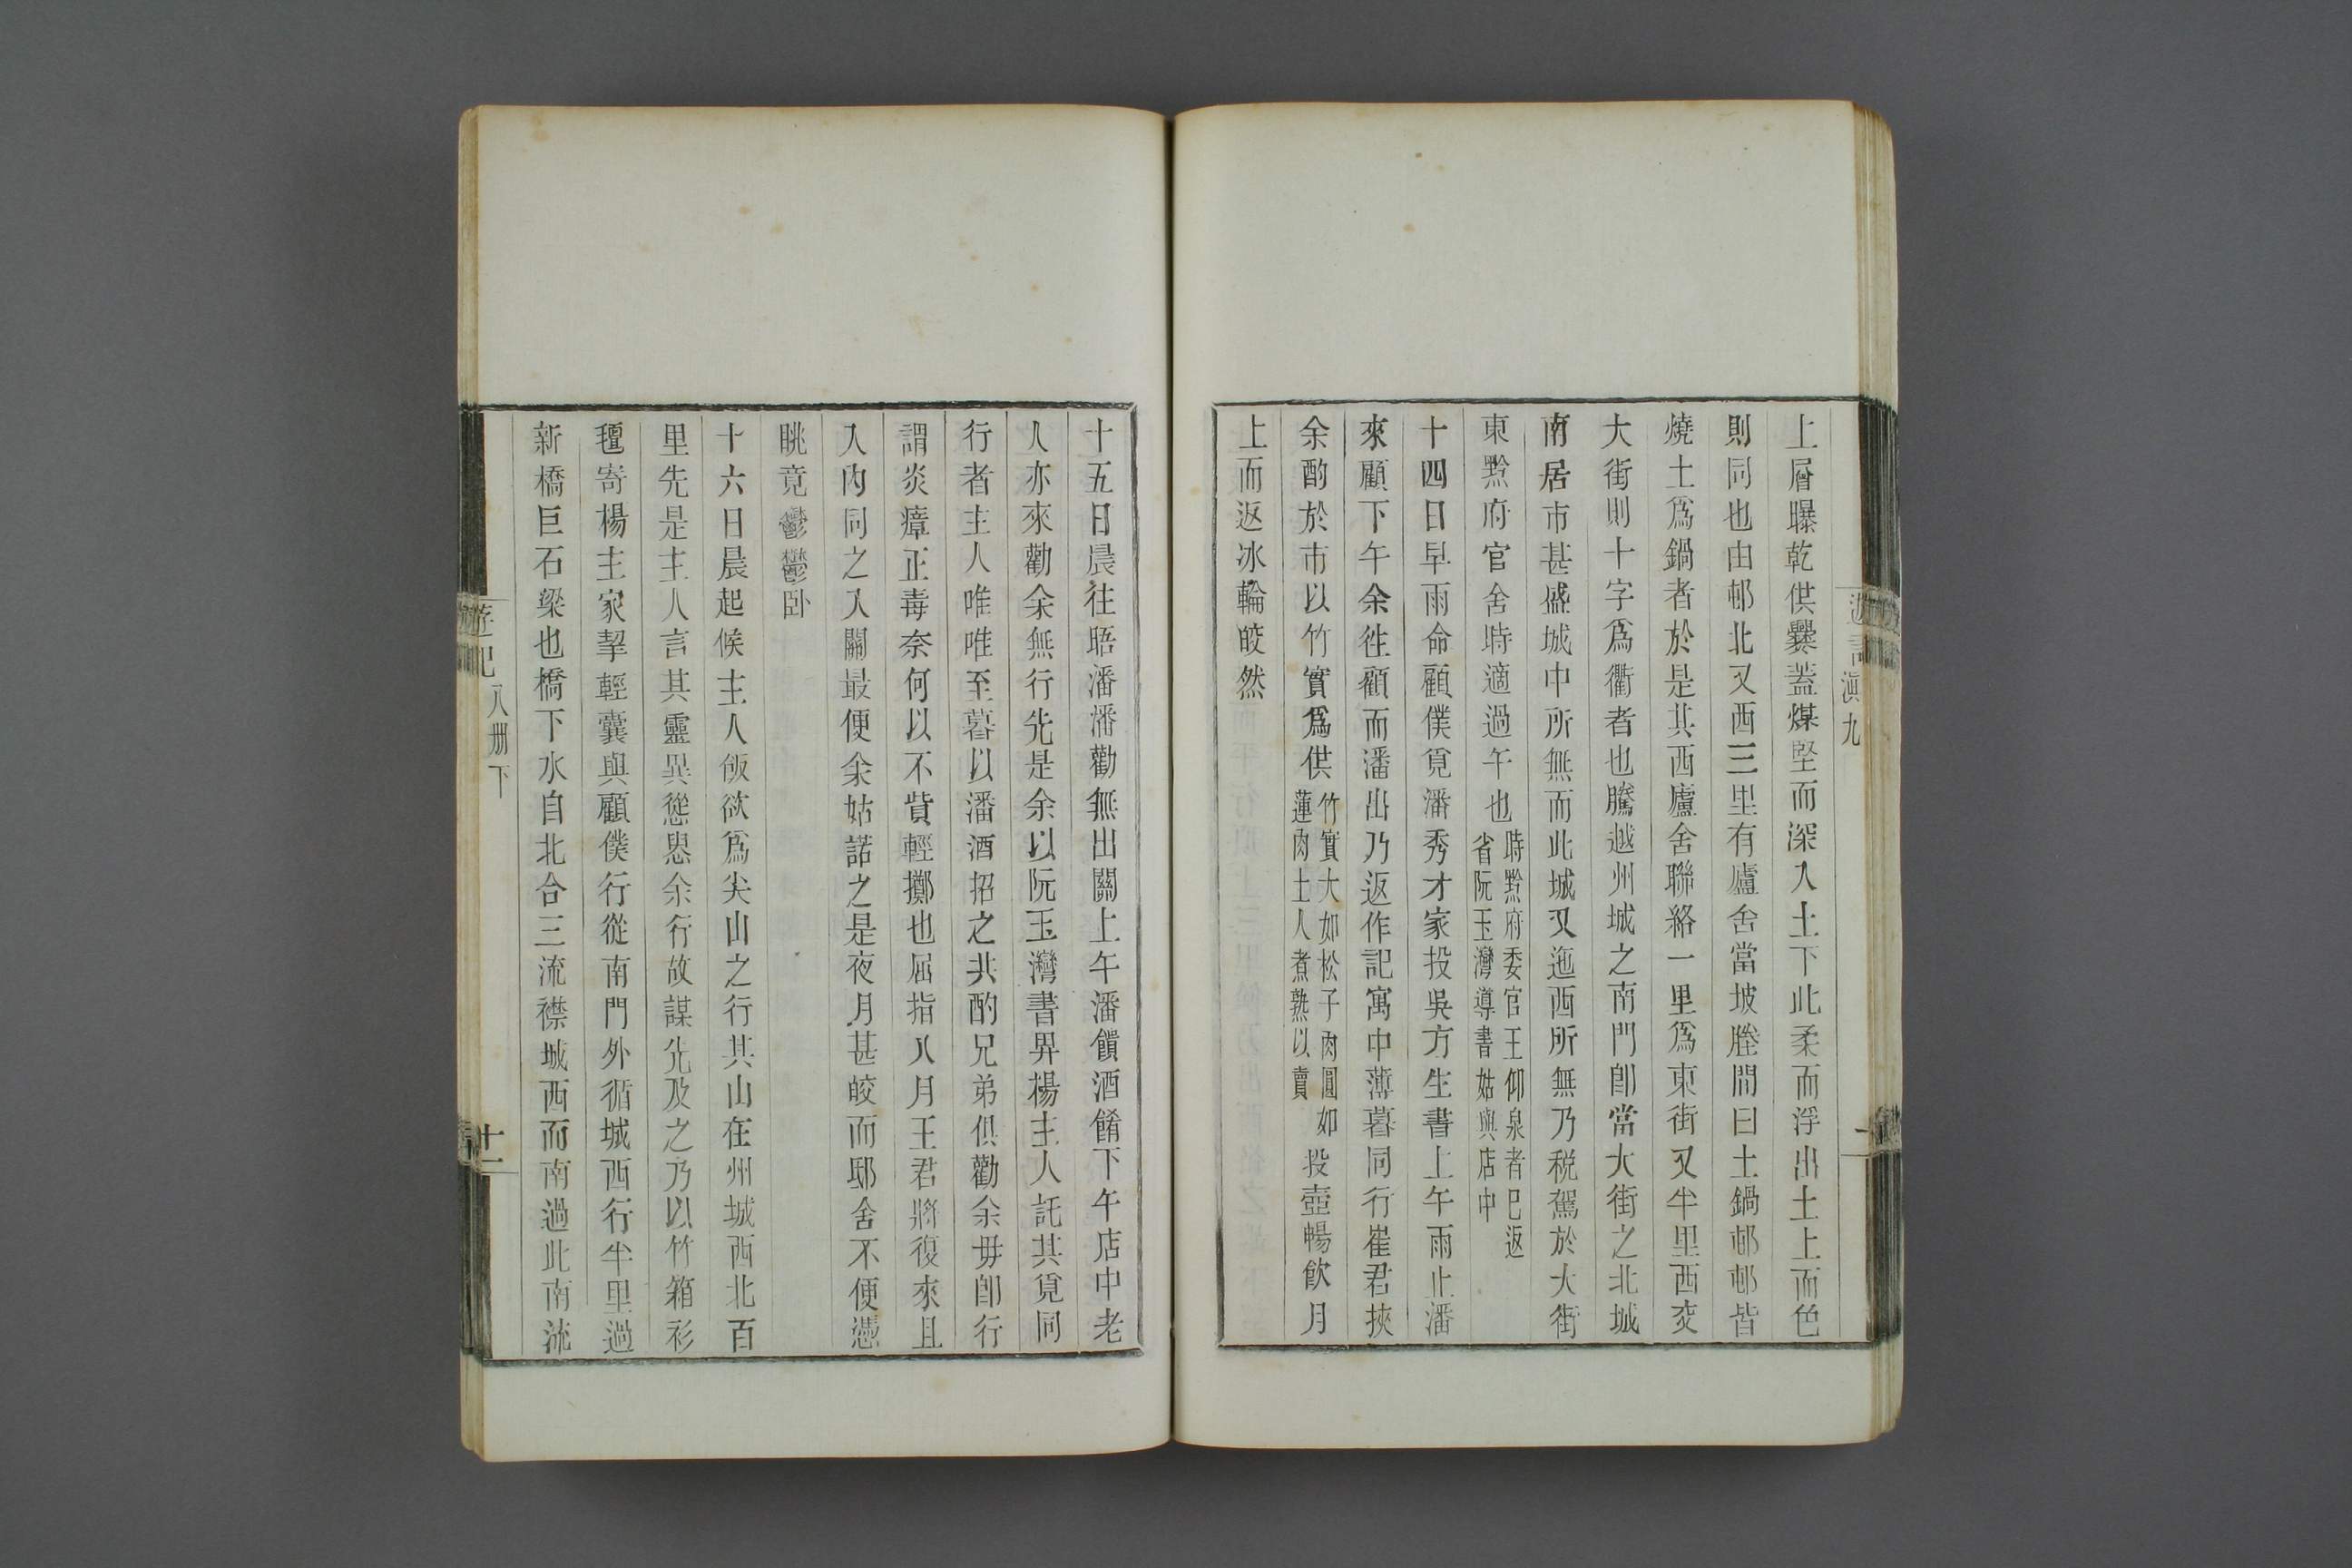 上層曝乾供爨蓋煤堅而深入土下此柔而浮出土上而色
則同也由邨北又西三里有廬舍當坡塍間曰土鍋邨邨皆
燒土爲鍋者於是其西廬舍聯絡一里爲東街又半里西交
大街則十字爲衢者也騰越州城之南門卽當大街之北城
南居市甚盛城中所無而此城又迤西所無乃税駕於大街
東黔府官舍時適過午也時黔府委官王仰泉者巳返省阮玉灣導書姑與店中
十四日早雨命顧僕覓潘秀才家投吳方生書上午雨止潘
來顧下午余徃顧而潘出乃返作記寓中薄暮同行崔君挾
余酌於市以竹實爲供竹實大如松子肉圓如蓮肉土人煮熟以賣投壺暢飮月
上而返冰輪皎然
十五日晨往晤潘潘勸無出關上午潘饋酒餚下午店中老
人亦來勸余無行先是余以阮玉灣書畀楊主人託其覓同
行者主人唯唯至暮以潘酒招之共酌兄弟俱勸余毋卽行
謂炎瘴正毒奈何以不貲輕擲也屈指八月王君將復來且
入內同之入關最便余姑諾之是夜月甚皎而邸舍不便憑
眺竟鬱鬱卧
十六日晨起候主人飯欲爲尖山之行其山在州城西北百
里先是主人言其靈異慫恿余行故謀先及之乃以竹箱衫
氊寄楊主家挈輕囊與顧僕行從南門外循城西行半里過
新橋巨石梁也橋下水自北合三流襟城西而南過此南流
遊記八册下
十一
滇九